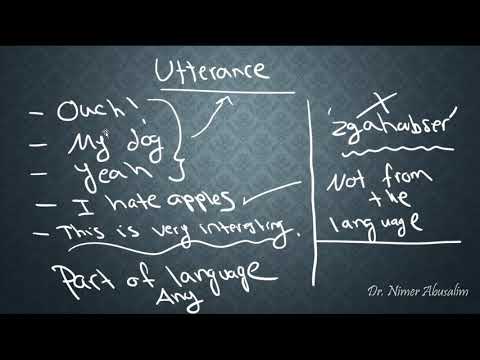 Utterance
- Ouch!
- My dog
- Yeah
- I hate apples
- This is very interesting.
Part of language
Any
'zgahabser'
Not from
the
language
Dr. Nimer Abusalim